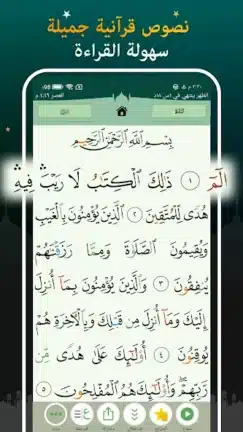 نصوص قرآنية جميلة
سهولة القراءة
بِسْمِ اللَّهِ الرَّحْمَٰنِ الرَّحِيمِ
الٓمٓ ١ ذَٰلِكَ الْكِتَٰبُ لَا رَيْبَ ۛ فِيهِ ۛ
هُدًى لِّلْمُتَّقِينَ ٢ الَّذِينَ يُؤْمِنُونَ بِالْغَيْبِ
وَيُقِيمُونَ الصَّلَوٰةَ وَمِمَّا رَزَقْنَٰهُمْ
يُنفِقُونَ ٣ وَالَّذِينَ يُؤْمِنُونَ بِمَآ أُنزِلَ
إِلَيْكَ وَمَآ أُنزِلَ مِن قَبْلِكَ وَبِالْءَاخِرَةِ هُمْ
يُوقِنُونَ ٤ أُو۟لَٰٓئِكَ عَلَىٰ هُدًى مِّن
رَّبِّهِمْ ۖ وَأُو۟لَٰٓئِكَ هُمُ الْمُفْلِحُونَ ٥